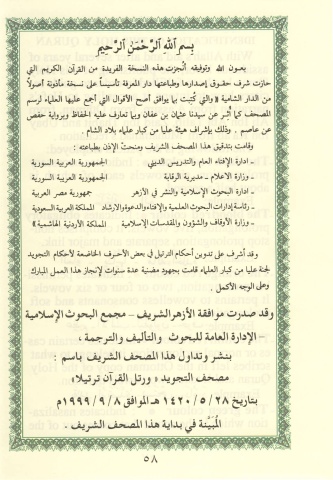 بِسْمِ اللَّهِ الرَّحْمَٰنِ الرَّحِيمِ
بعون الله وتوفيقه أُنجزت هذه النسخة الفريدة من القرآن الكريم التي
حازت شرف حقوق إصدارها وطباعتها دار المعرفة تأسيساً على نسخة مأذونة أصولاً
من الدار الشامية « والتي كُتبت بما يوافق أصح الأقوال التي أجمع عليها العلماء لرسم
المصحف كما أُثر عن سيدنا عثمان بن عفان وبما تعارف عليه الحفاظ وبرواية حفص
عن عاصم . وذلك بإشراف هيئة عليا من كبار علماء بلاد الشام .
وقامت بتدقيق هذا المصحف الشريف ومنحت الإذن بطباعته :
- ادارة الإفتاء العام والتدريس الديني . الجمهورية العربية السورية
- وزارة الاعلام - مديرية الرقابة الجمهورية العربية السورية
- ادارة البحوث الإسلامية والنشر في الأزهر جمهورية مصر العربية
- رئاسة إدارات البحوث العلمية والإفتاء والدعوة والارشاد المملكة العربية السعودية
- وزارة الأوقاف والشؤون والمقدسات الإسلامية المملكة الأردنية الهاشمية »
وقد أشرف على تدوين أحكام الترتيل في بعض الأحرف الخاضعة لأحكام التجويد
لجنة عليا من كبار العلماء قامت بجهود مضنية عدة سنوات لإنجاز هذا العمل المبارك
وعلى الوجه الأكمل .
وقد صدرت موافقة الأزهر الشريف - مجمع البحوث الإسلامية
- الإدارة العامة للبحوث والتأليف والترجمة ،
بنشر وتداول هذا المصحف الشريف باسم :
مصحف التجويد « ورتل القرآن ترتيلا »
بتاريخ ١٤٢٠/٥/٢٨ هـ الموافق ١٩٩٩/٩/٨م
المُبيَّنة في بداية هذا المصحف الشريف .
٥٨